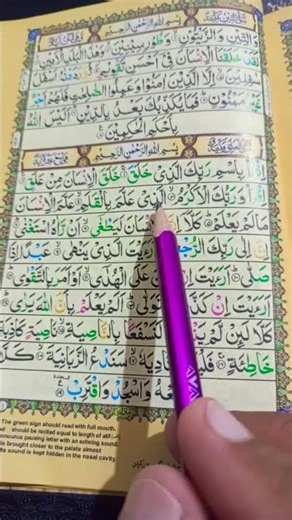 بِسْمِ اللّٰهِ الرَّحْمٰنِ الرَّحِيْمِ
وَالتِّيْنِ وَالزَّيْتُوْنِ ۙ وَطُوْرِ سِيْنِيْنَ ۙ وَهٰذَا الْبَلَدِ الْاَمِيْنِ
لَقَدْ خَلَقْنَا الْاِنْسَانَ فِيْٓ اَحْسَنِ تَقْوِيْمٍ ثُمَّ رَدَدْنٰهُ اَسْفَلَ
سٰفِلِيْنَ اِلَّا الَّذِيْنَ اٰمَنُوْا وَعَمِلُوا الصّٰلِحٰتِ فَلَهُمْ اَجْرٌ
غَيْرُ مَمْنُوْنٍ فَمَا يُكَذِّبُكَ بَعْدُ بِالدِّيْنِ اَلَيْسَ اللّٰهُ
بِاَحْكَمِ الْحٰكِمِيْنَ
بِسْمِ اللّٰهِ الرَّحْمٰنِ الرَّحِيْمِ
اِقْرَاْ بِاسْمِ رَبِّكَ الَّذِيْ خَلَقَ خَلَقَ الْاِنْسَانَ مِنْ عَلَقٍ
اِقْرَاْ وَرَبُّكَ الْاَكْرَمُ الَّذِيْ عَلَّمَ بِالْقَلَمِ عَلَّمَ الْاِنْسَانَ
مَا لَمْ يَعْلَمْ كَلَّآ اِنَّ الْاِنْسَانَ لَيَطْغٰٓى اَنْ رَّاٰهُ اسْتَغْنٰى
اِنَّ اِلٰى رَبِّكَ الرُّجْعٰى اَرَءَيْتَ الَّذِيْ يَنْهٰى عَبْدًا اِذَا
صَلّٰى اَرَءَيْتَ عَلَى الْهُدٰٓى اَوْ اَمَرَ بِالتَّقْوٰى
اَرَءَيْتَ اِنْ كَذَّبَ وَتَوَلّٰى اَلَمْ يَعْلَمْ بِاَنَّ اللّٰهَ يَرٰى
كَلَّا لَئِنْ لَّمْ لَنَسْفَعًا بِالنَّاصِيَةِ نَاصِيَةٍ كَاذِبَةٍ
خَاطِئَةٍ نَادِيَهٗ سَنَدْعُ الزَّبَانِيَةَ كَلَّا
وَاسْجُدْ وَاقْتَرِبْ
The green sign should read with full mouth.
should be recited equal to length of alif
pausing letter with an echoing sound.
is brought closer to the palate almost
sound is kept hidden in the nasal cavity.